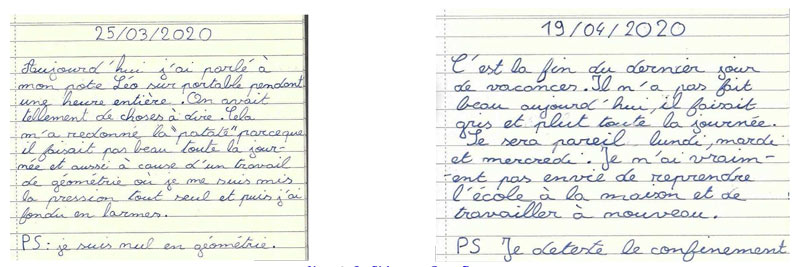 25/03/2020
Aujourd'hui j'ai parlé à
mon pote Léo sur portable pendant
une heure entière. On avait
tellement de choses à dire. Cela
m'a redonné la "patate" parceque
il faisait pas beau toute la jour-
née et aussi à cause d'un travail
de géométrie où je me suis mis
la pression tout seul et puis j'ai
fondu en larmes.
PS: je suis nul en géométrie.
19/04/2020
C'est la fin du dernier jour
de vacances. Il m'a pas fait
beau aujourd'hui, il faisait
gris et plut toute la journée.
Se sera pareil lundi, mardi
et mercredi. Je m'ai vraim-
-ent pas envie de reprendre
l'école à la maison et de
travailler à nouveau.
PS Je deteste le confinement